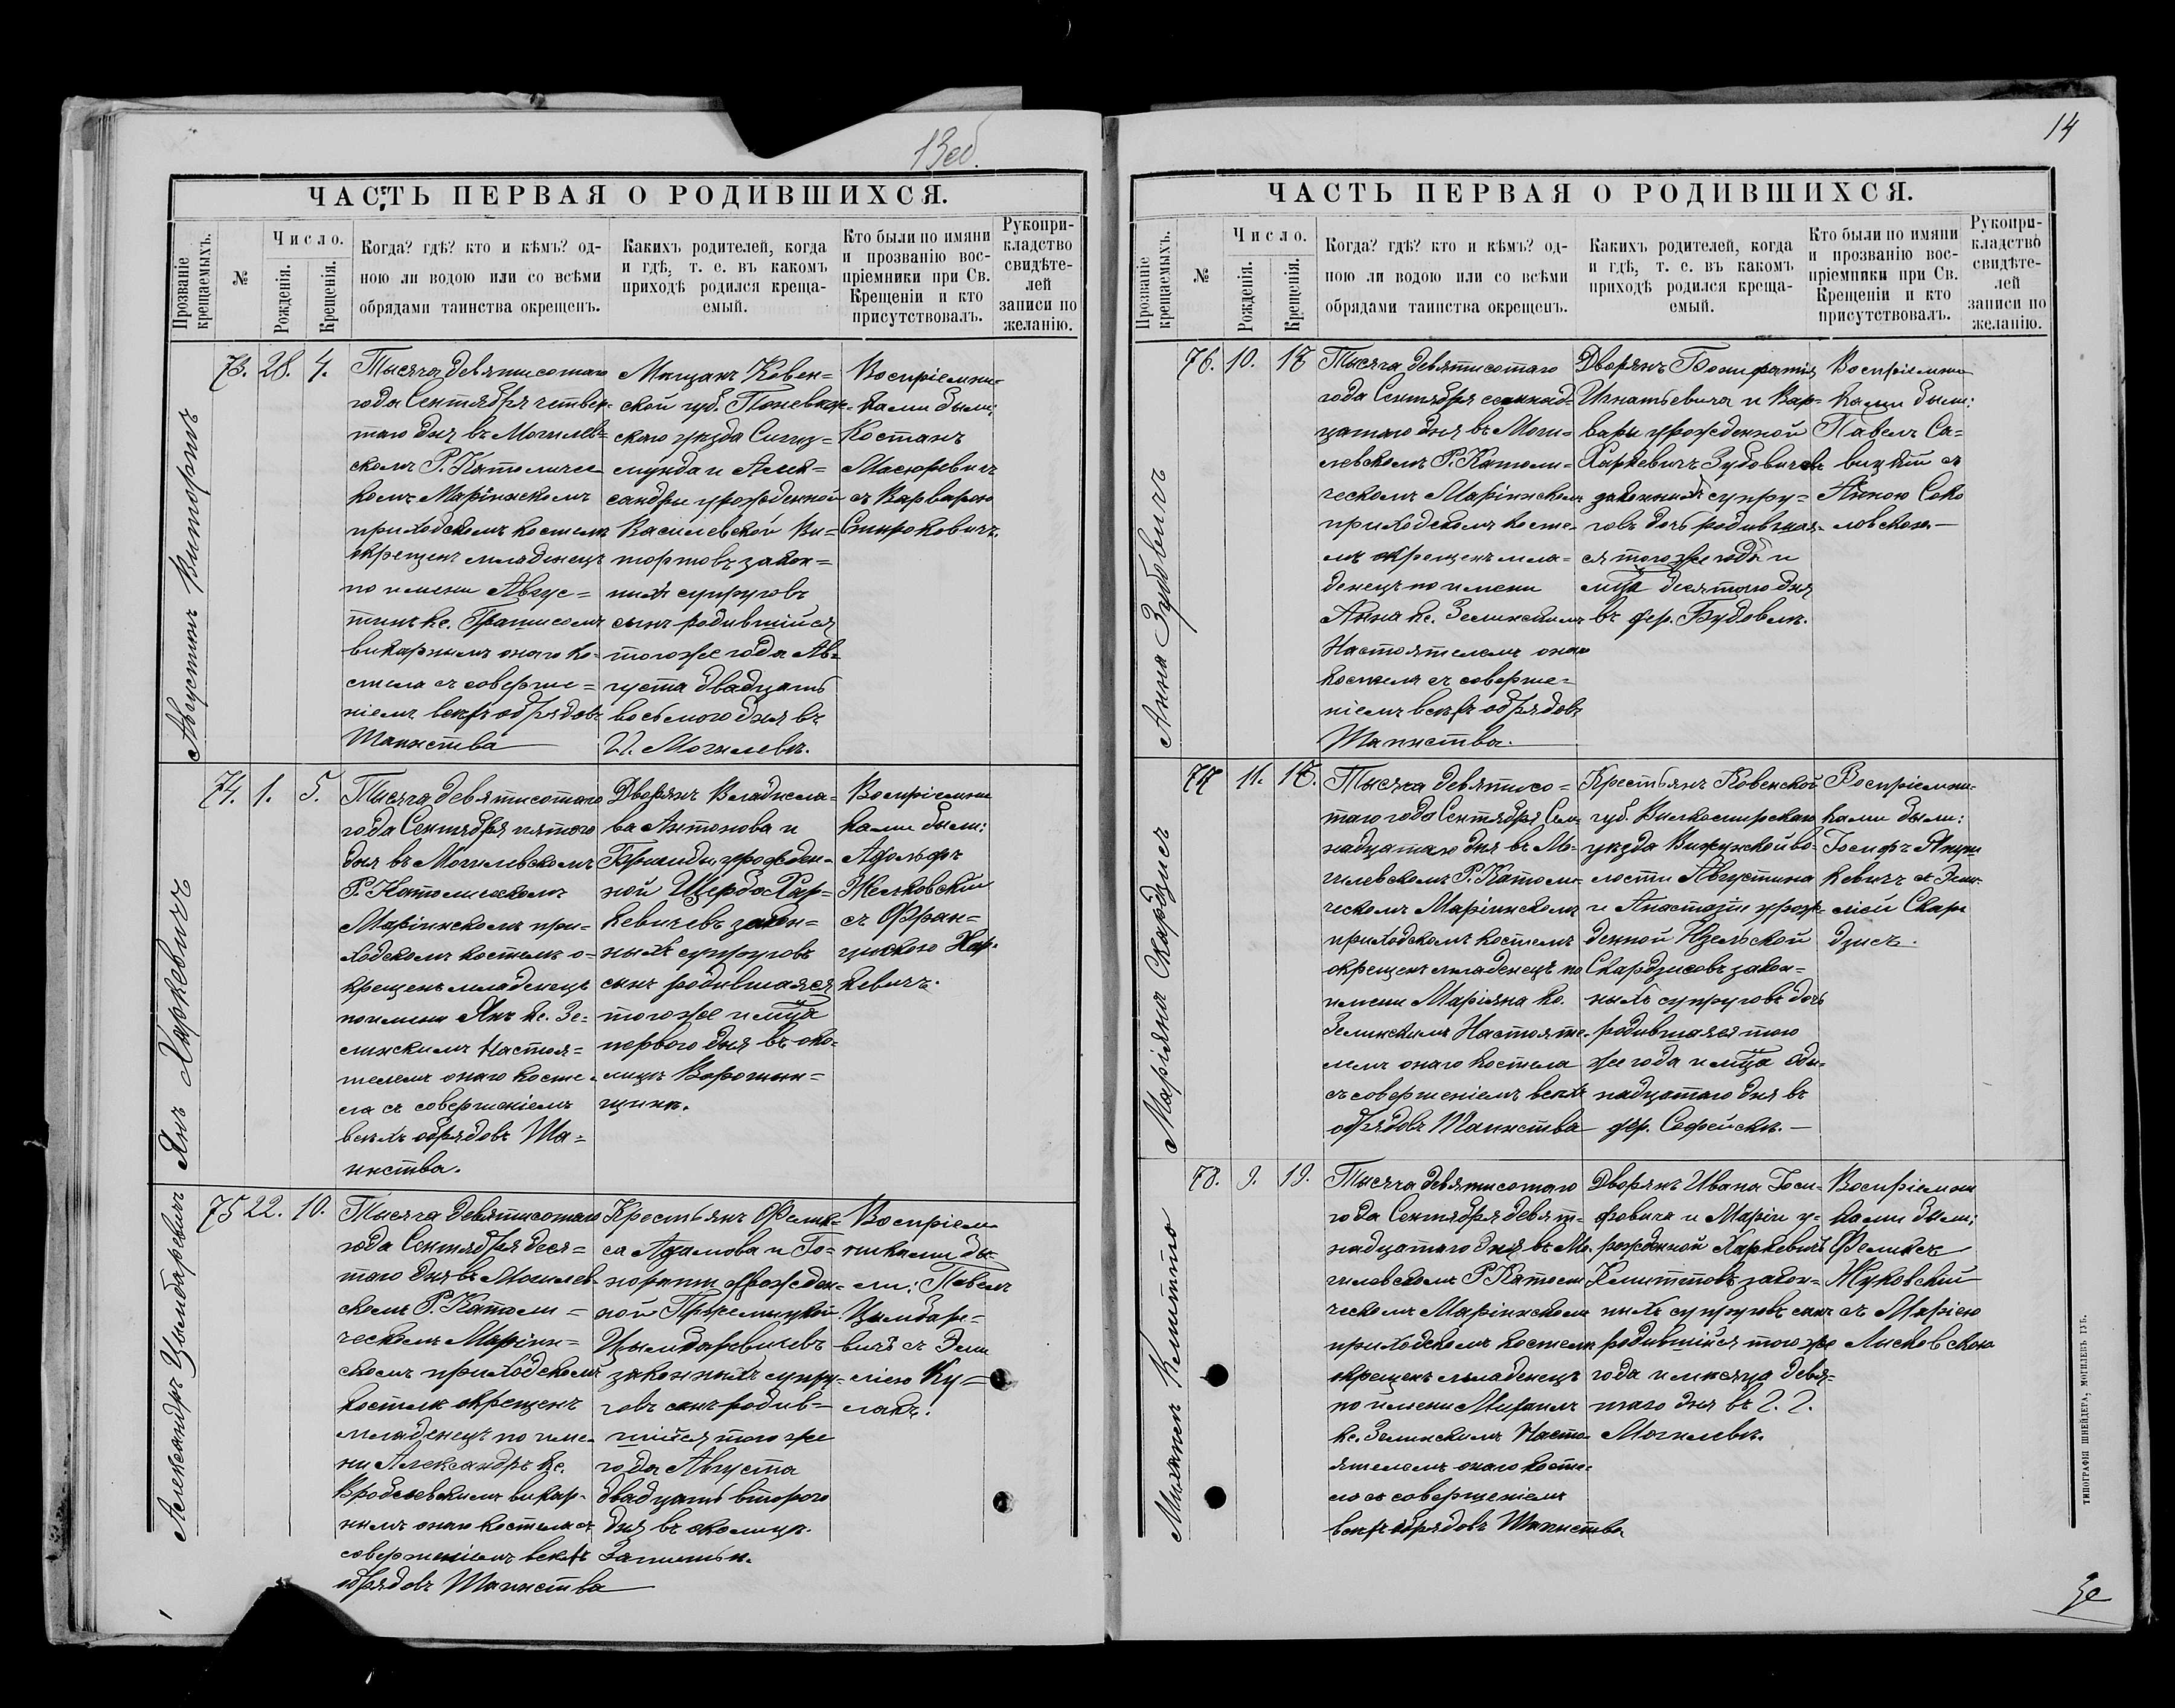 13об.
ЧАСТЬ ПЕРВАЯ О РОДИВШИХСЯ.
Прозваніе
крещаемыхъ.
№
Число.
Рожденія.
Крещенія.
Когда? гдѣ? кто и кѣмъ? од-
ною ли водою или со всѣми
обрядами таинства окрещенъ.
Какихъ родителей, когда
и гдѣ, т. е. въ какомъ
приходѣ родился креща-
емый.
Кто были по имяни
и прозванію вос-
пріемники при Св.
Крещеніи и кто
присутствовалъ.
Рукопри-
кладство
свидѣте-
лей
записи по
желанію.
Августинъ Виторжъ
73. 28. 4.
Тысяча девятисотаго
года Сентября четвер-
таго дня въ Могилев-
скомъ Р. Католичес
комъ Маріинскомъ
приходскомъ костелѣ
окрещенъ младенецъ
по имени Авгус-
тинъ кс.
викарнымъ онаго ко-
стела съ соверше-
ніемъ всѣхъ обрядовъ
Таинства
Мѣщанъ Ковен-
ской губ. Поневеж-
скаго уѣзда Сигиз-
мунда и Алек-
сандры урожденной
Василевской Ви-
торжовъ закон-
ныхъ супруговъ
сынъ родившійся
того же года Ав-
густа двадцать
восьмого дня въ
г. Могилевѣ.
Воспріемни-
ками были:
Костанъ
Масюревичъ
съ Варварою
Спироковичъ.
Янъ Харкевичъ
74. 1. 5.
Тысяча девятисотаго
года Сентября пятого
дня въ Могилевскомъ
Р. Католическомъ
Маріинскомъ при-
ходскомъ костелѣ о-
крещенъ младенецъ
по имени Янъ кс. Зе-
линскимъ Настоя-
телемъ онаго косте-
ла съ совершеніемъ
всѣхъ обрядовъ Та-
инства.
Дворянъ Владисла-
ва Антонова и
Бригиды урожден-
ной Щерба Хар-
кевичевъ закон-
ныхъ супруговъ
сынъ родившаяся
того же и мца
первого дня въ око-
лицѣ Воротын-
щинѣ.
Воспріемни
ками были:
Адольфъ
Желковскій
съ Фран-
цишкою Хар-
кевичъ.
Александръ Цымбаревичъ
75 22. 10.
Тысяча девятисотаго
года Сентября деся-
таго дня въ Могилев-
скомъ Р. Католи-
ческомъ Маріин-
скомъ приходскомъ
костелѣ окрещенъ
младенецъ по име-
ни Александръ кс.
Вроблевскимъ викар-
нымъ онаго костела съ
совершеніемъ всѣхъ
обрядовъ Таинства
Крестьянъ Фелик-
са Адамова и Го-
нораты урожден-
ной
Цымбаревичевъ
законныхъ супру-
говъ сынъ родив-
шійся того же
года Августа
двадцать второго
дня въ околицѣ
Воспріем-
никами бы-
ли: Павелъ
Цымбаре-
вичъ съ Эми
ліею Ку-
лакъ.
14
ЧАСТЬ ПЕРВАЯ О РОДИВШИХСЯ.
Прозваніе
крещаемыхъ.
№
Число.
Рожденія.
Крещенія.
Когда? гдѣ? кто и кѣмъ? од-
ною ли водою или со всѣми
обрядами таинства окрещенъ.
Какихъ родителей, когда
и гдѣ, т. е. въ какомъ
приходѣ родился креща-
емый.
Кто были по имяни
и прозванію вос-
пріемники при Св.
Крещеніи и кто
присутствовалъ.
Рукопри-
кладство
свидѣте-
лей
записи по
желанію.
Анна Зубовичъ
76. 10. 17
Тысяча девятисотаго
года Сентября семнад-
цатаго дня въ Моги-
левскомъ Р. Католи-
ческомъ Маріинскомъ
приходскомъ косте-
лѣ окрещенъ мла-
денецъ по имени
Анна кс. Зелинскимъ
Настоятелемъ онаго
костела съ соверше-
ніемъ всѣхъ обрядовъ
Таинства.
Дворянъ Бонифатія
Игнатьевича и Вар-
вары урожденной
Харкевичъ Зубовичевъ
законныхъ супру-
говъ дочь родившая-
ся того же года и
мца десятого дня
въ фер. Будовлѣ.
Воспріемни
ками были:
Павелъ Са-
вицкій съ
Анною Соко
ловскою.
Маріяна Скардзись
77 11. 17.
Тысяча девятисо-
таго года Сентября Сем-
надцатаго дня въ Мо-
гилевскомъ Р. Католи-
ческомъ Маріинскомъ
приходскомъ костелѣ
окрещенъ младенецъ по
имени Маріяна кс.
Зелинскимъ Настояте-
лемъ онаго костела
съ совершеніемъ всѣхъ
обрядовъ Таинства
Крестьянъ Ковенской
губ. Вилкомирскаго
уѣзда Вижунской во-
лости Августина
и Анастазіи урож-
денной
Скардзисовъ закон-
ныхъ супруговъ дочь
родившаяся того
же года и мца оди-
надцатаго дня въ
фер. Софейскѣ.
Воспріемни-
ками были:
Іосифъ Януш
кевичъ съ Эми-
ліей Скар
дзись.
Михаилъ Клитто
78. 9. 19.
Тысяча девятисотаго
года Сентября девят-
надцатаго дня въ Мо-
гилевскомъ Р. Католи
ческомъ Маріинскомъ
приходскомъ костелѣ
окрещенъ младенецъ
по имени Михаилъ
кс. Зелинскимъ Насто-
ятелемъ онаго косте-
ла съ совершеніемъ
всѣхъ обрядовъ Таинства
Дворянъ Ивана Іоси-
фовича и Маріи у-
рожденной Харкевичъ
Клиттовъ закон-
ныхъ супруговъ сынъ
родившійся того же
года и мѣсяца девя-
таго дня въ г. г.
Могилевѣ.
Воспріемни
ками были:
Феликсъ
Жуковскій
съ Маріею
Лисковскою
ТИПОГРАФІЯ ШНЕЙДЕРА, МОГИЛЕВЪ ГУБ.